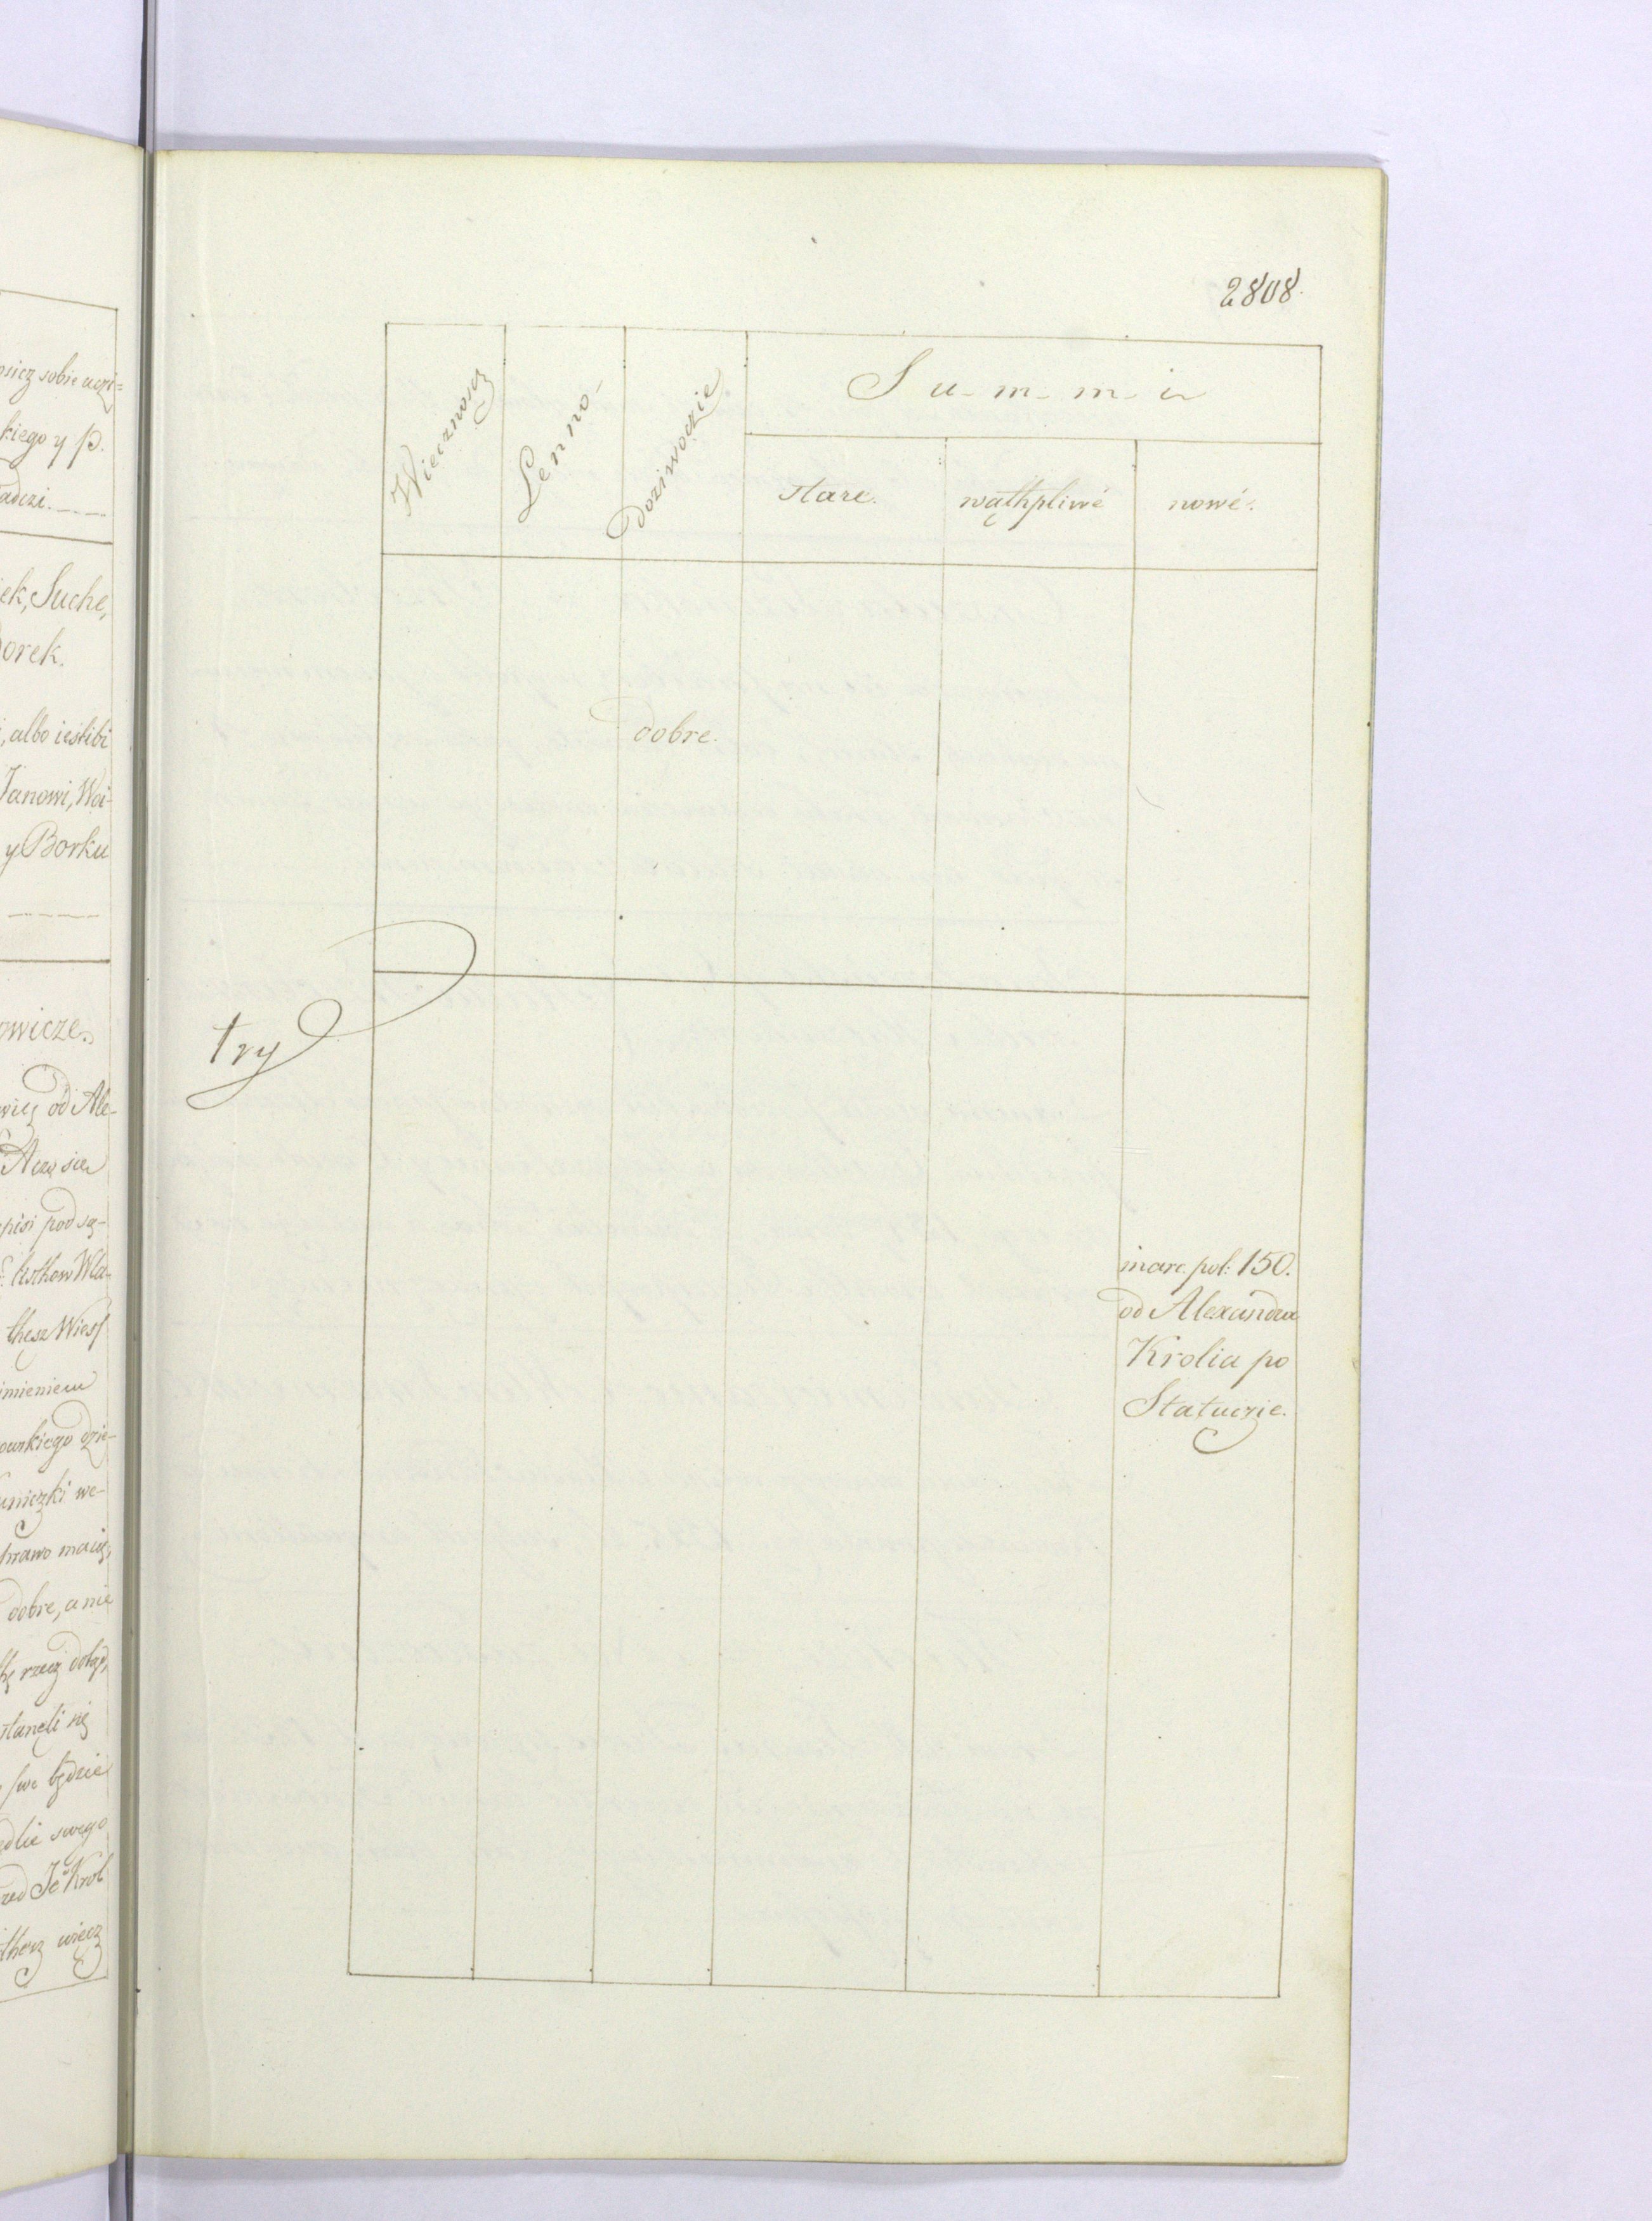 osicz sobie uczi=
kiego y p.
adczi.
ek, Suche,
orek.
, albo iestibi
Janowi, Woi-
y Borku
owicze.
wicz od Ale-
Acz sie
pisi pod są-
listhow Wła-
thesz Wiess
imieniem
owskiego dzie-
we-
prawo maią,
dobre, a nie
rzecz dotąd,
staneli się
swe będzie
edlie swego
zed Je° Krol
wiecz
2808.
Wiecznoscz
Lenno-
Doziwoczie
Su-m-m-i
stare.
wąthpliwé
nowé.
dobre.
try
marc. pol: 150.
od Alexandra
Krolia po
Statuczie.